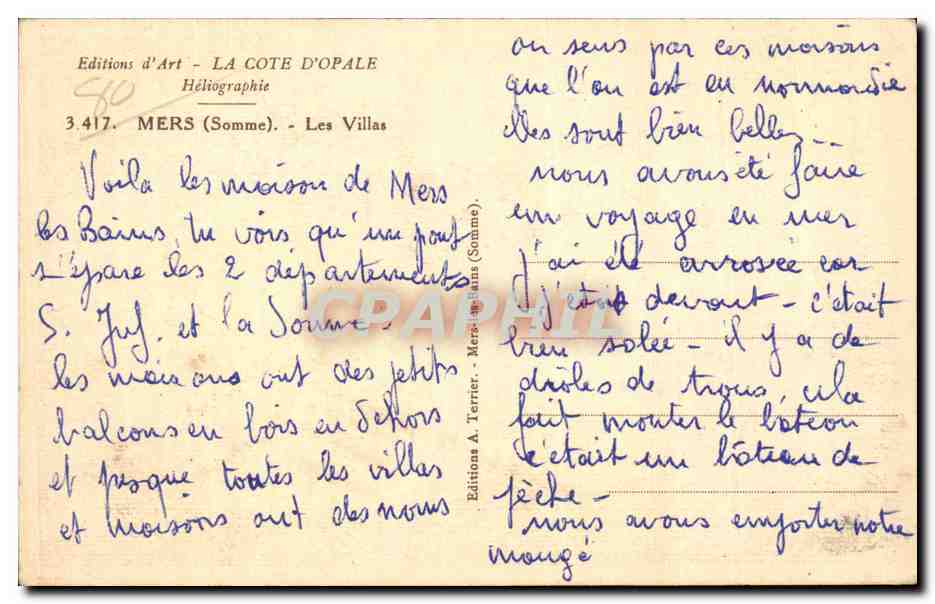 Editions d'Art - LA COTE D'OPALE
Héliographie
80
3.417. MERS (Somme). - Les Villas
Voila les maison de Mers
les Bains, tu vois qu'un pont
s'épare les 2 départements
S. Inf. et la Somme -
les maisons ont des petits
balcons en bois en dehors
et presque toutes les villas
et maisons ont des noms
Editions A. Terrier. - Mers-les-Bains (Somme).
CPARPHIL
on sens par ces maisons
que l'on est en normandie
elles sont bien belles
nous avons été faire
un voyage en mer
j'ai été arrosée car
j'étais devant - c'était
bien salée - il y a de
drôles de trous, cela
fait monter le bateau
c'était un bâteau de
pêche -
nous avons emporter notre
mangé